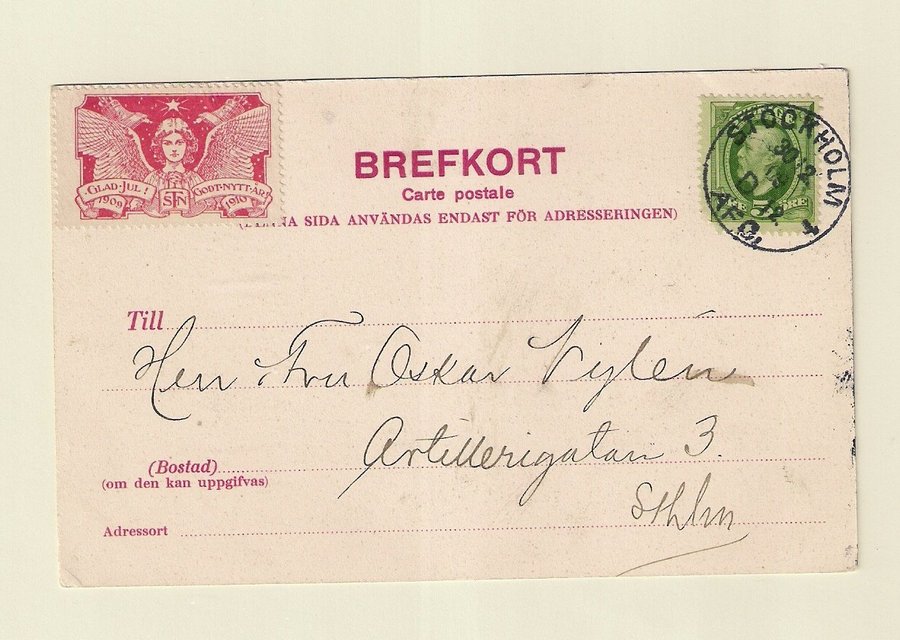 GLAD·JUL! GODT·NYTT·ÅR!
1909 STN 1910
BREFKORT
Carte postale
SIDA ANVÄNDAS ENDAST FÖR ADRESSERINGEN)
STOCKHOLM
5 ÖRE
Till
Herr Fru Oskar
Artillerigatan 3.
(Bostad)
(om den kan uppgifvas)
Sthlm
Adressort